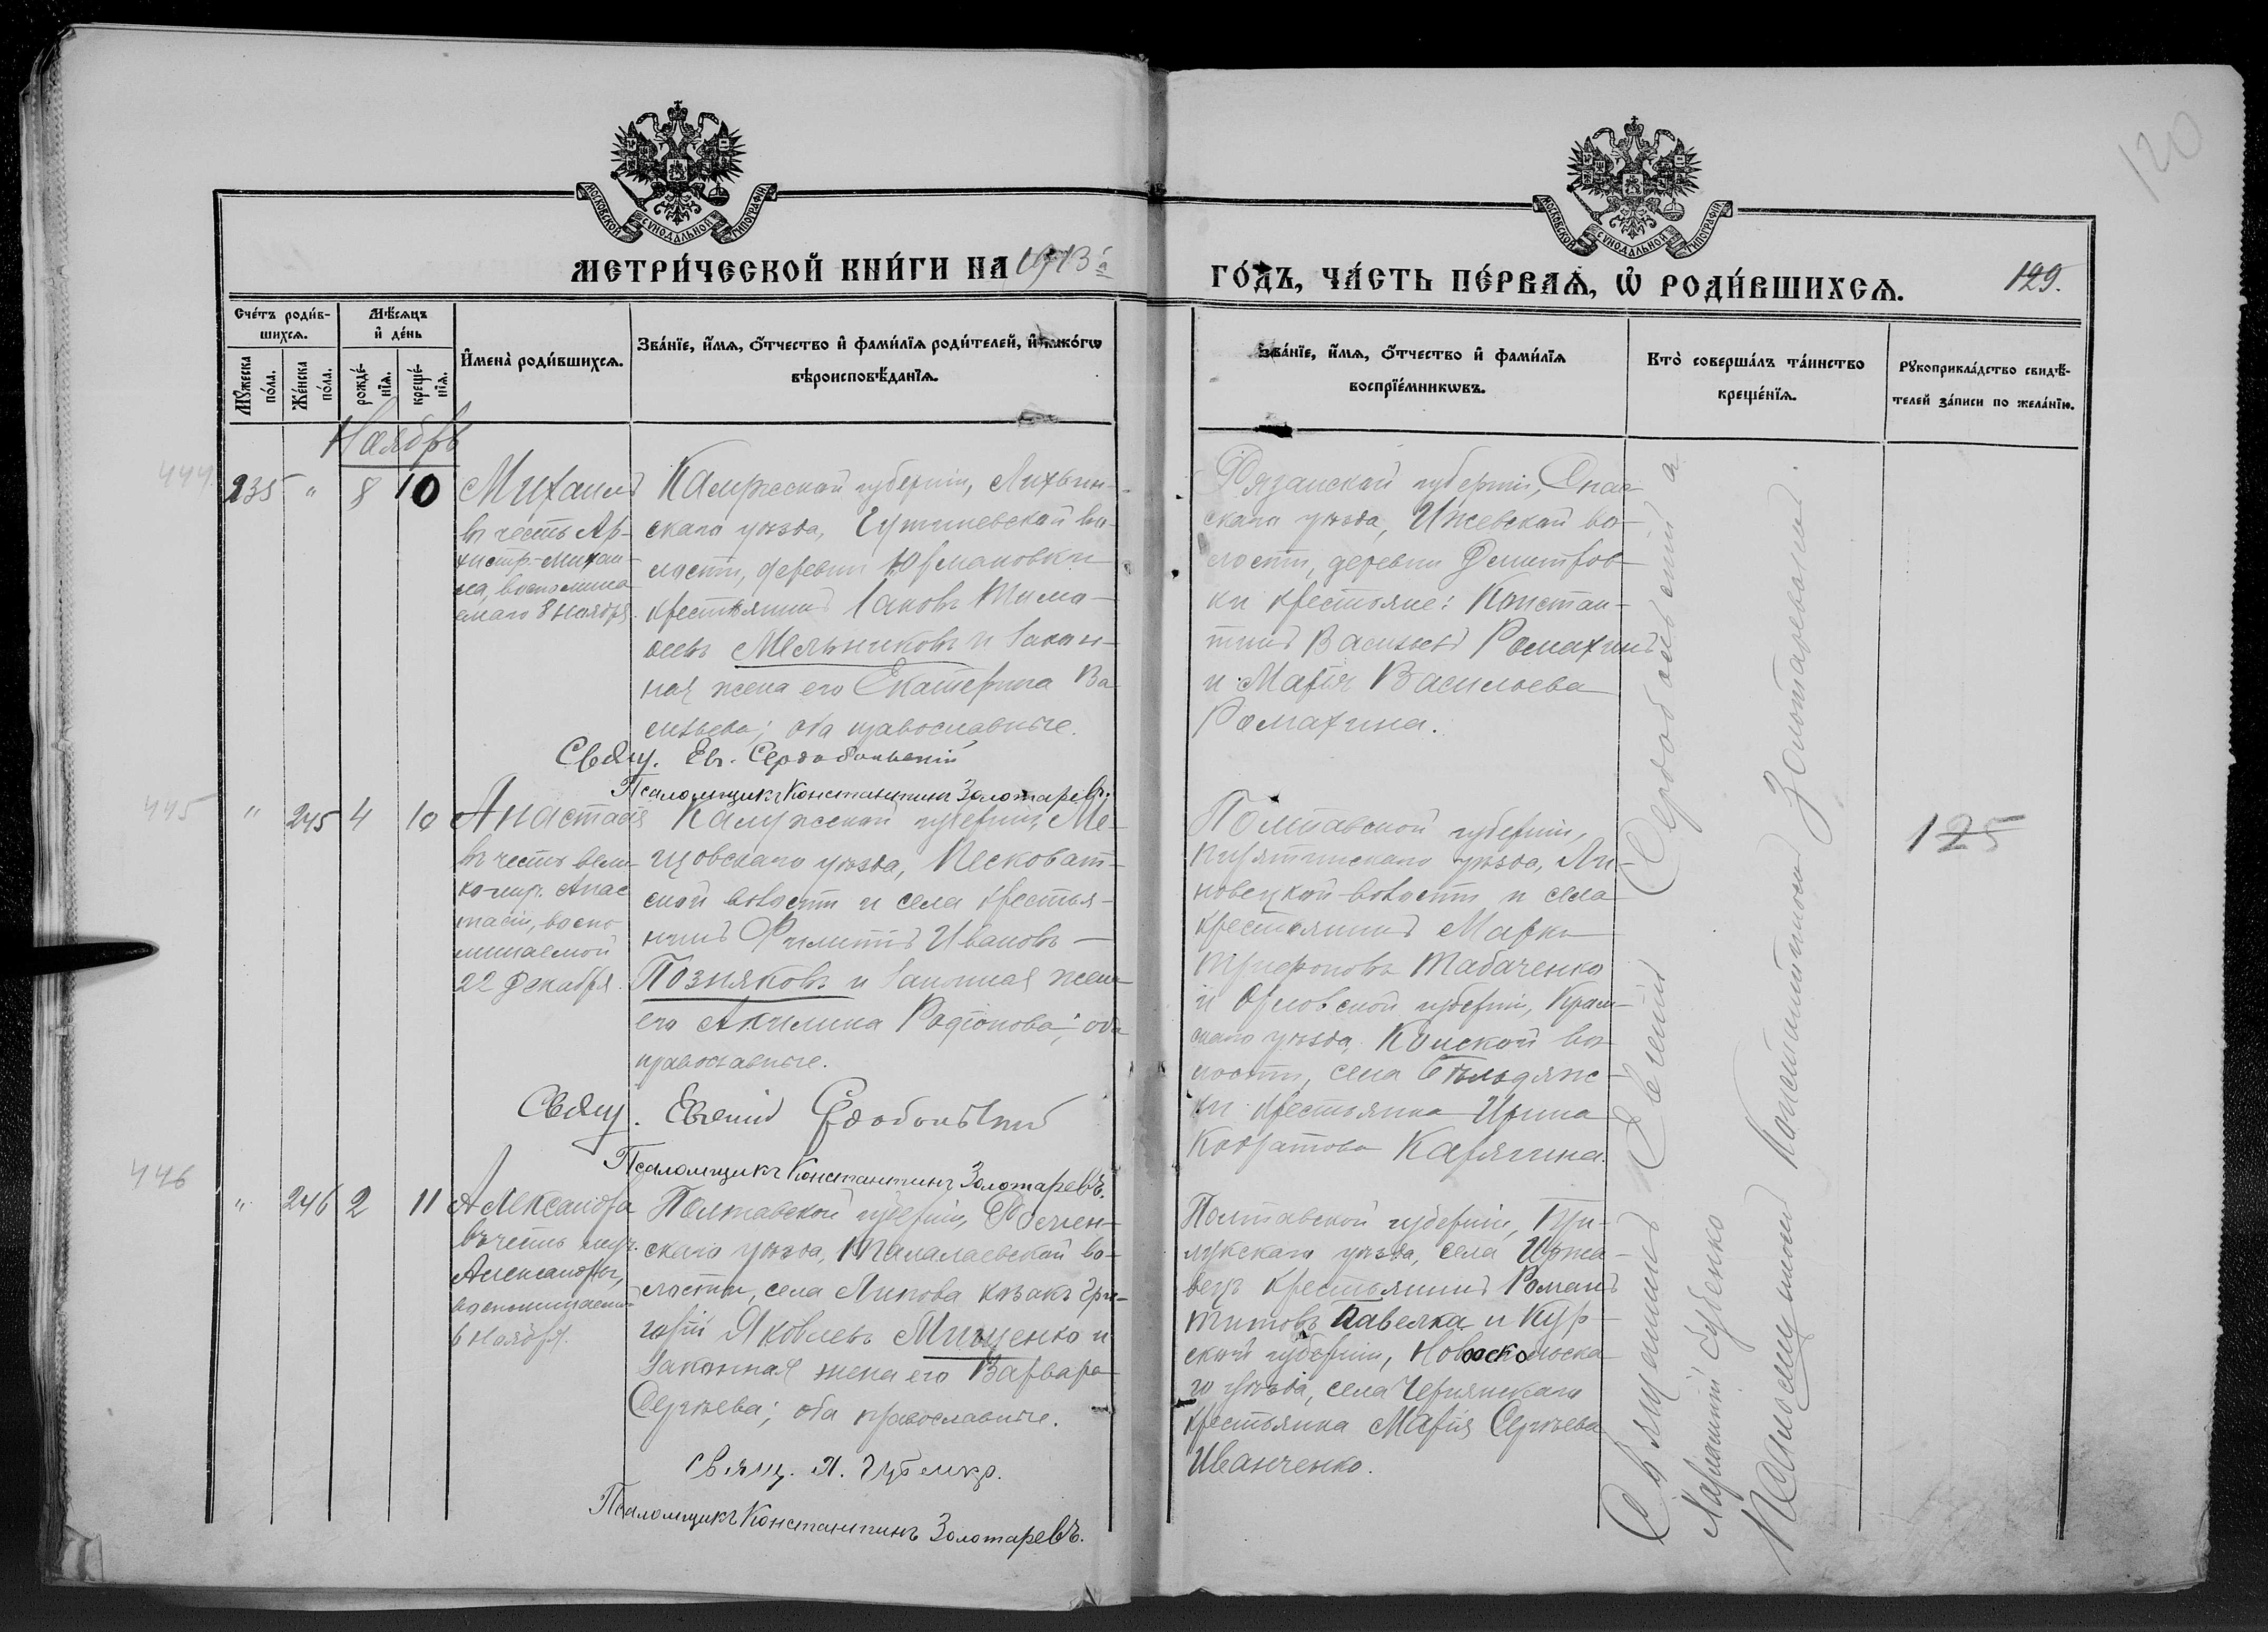 120
МОСКОВСКОЙ СѴНОДАЛЬНОЙ ТИПОГРАФІИ
МОСКОВСКОЙ СѴНОДАЛЬНОЙ ТИПОГРАФІИ
МЕТРИ́ЧЕСКОЙ КНИ́ГИ НА 1913й
ГО́ДЪ, ЧА́СТЬ ПЕ́РВАѦ, Ѡ҆ РОДИ́ВШИХСѦ.
129.
Сче́тъ роди́в-
шихсѧ.
Мꙋ́жеска
по́ла.
Же́нска
по́ла.
Мѣ́сѧцъ
и҆ де́нь
рожде́-
нїѧ.
креще́-
нїѧ.
И҆мена̀ роди́вшихсѧ.
Зва́нїе, и҆́мѧ, ѻ҆́тчество и҆ фами́лїѧ роди́телей, и҆ како́гѡ
вѣроисповѣ́данїѧ.
Зва́нїе, и҆́мѧ, ѻ҆́тчество и҆ фами́лїѧ
воспрїе́мникѡвъ.
Кто̀ соверша́лъ та́инство
креще́нїѧ.
Рꙋкоприкла́дство свидѣ́-
телей за́писи по жела́нїю.
Ноябрь
444
235 " 8 10
Михаилъ
въ честь Ар-
хистр. Михаи-
ла, воспомина-
емаго 8 Ноября.
Калужской губерніи, Лихвин-
скаго уѣзда, во-
лости, деревни
крестьянинъ Іаковъ Тимо-
ѳеевъ Мельниковъ и Закон-
ная жена его Екатерина Ва-
сильева; оба православные.
Свящ. Евг. Сердобольскій
Псаломщикъ Константинъ Золотаревъ.
Рязанской губерніи, Спас-
скаго уѣзда, Ижевской во-
лости, деревни Дмитров-
ки крестьяне: Констан-
тинъ Васильевъ Ромахинъ
и Марія Васильева
Ромахина.
445
" 245 4 10
Анастасія
въ честь вели-
ко-муч. Анас-
тасіи, воспо-
минаемой
22 Декабря.
Калужской губерніи, Ме-
щовскаго уѣзда, Песковат-
ской волости и села крестья-
нинъ Филиппъ Ивановъ
Позняковъ и Законная жена
его Акилина Родіонова; оба
православные.
Свящ. Евгеній Сердобольскій
Псаломщикъ Константинъ Золотаревъ.
Полтавской губерніи,
Пирятинскаго уѣзда, Ли-
новецкой волости и села
крестьянинъ Марко
Трифоновъ Табаченко
и Орловской губерніи, Кром-
скаго уѣзда, во-
лости, села
ки крестьянка Ирина
Кондратова Карягина.
125
446
" 246 2 11
Александра
въ честь муч.
Александры,
воспоминаемой
6 Ноября.
Полтавской губерніи, Роменс-
скаго уѣзда, Талалаевской во-
лости, села Липова козакъ Гри-
горій Яковлевъ Мищенко и
Законная жена его Варвара
Сергѣева; оба православные.
Свящ. Л. Губенко.
Псаломщикъ Константинъ Золотаревъ.
Полтавской губерніи, При-
лукскаго уѣзда, села Иржа-
вецъ крестьянинъ Романъ
Титовъ Павелка и Кур-
ской губерніи, Новооскольска-
го уѣзда, села Чернянскаго
крестьянка Марія Сергѣева
Иванченко.
Священникъ Евгеній Сердобольскій а
Лаврентій Губенко
Псаломщикомъ Константиномъ Золотаревымъ.